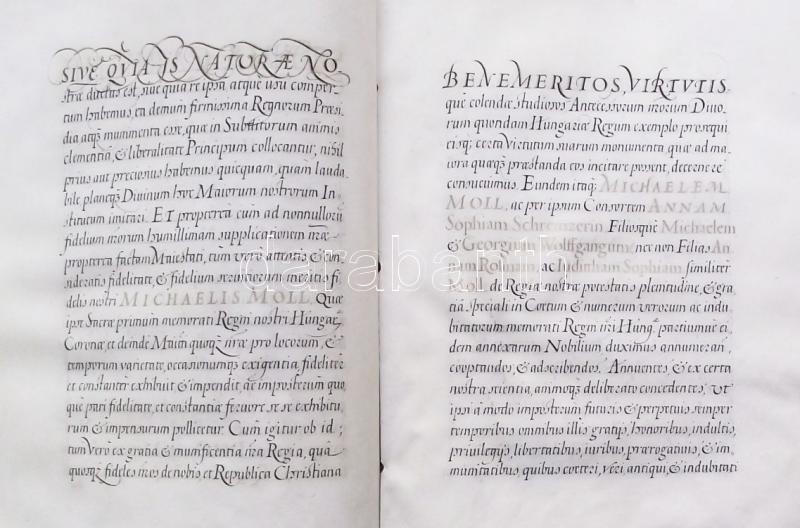 SIVE QVIA IS NATURÆ NO,
stræ ductus est, sive quia re ipsa atque usu comper,
tum habemus, ea demum firmissima Regnorum Præsi,
dia atq; munimenta esse, quæ in Subditorum animis
clementiâ, & liberalitate Principum collocantur, nihil
prius aut preciosius habemus quicquam, quàm lauda,
bile planeq; Divinum hoc Maiorum nostrorum In,
stitutum imitari. Et propterea cùm ad nonnullorũ
fidelium nr̃orum humillimam supplicationem nr̃æ
propterea factam Maiestati, tum verò attentis, & con,
sideratis fidelitate, & fidelium servitiorum meritis fi
delis nostri MICHAELIS MOLL, Quæ
ipse Sacræ primùm memorati Regni nostri Hungae,
Coronæ, et deinde Mtti quoq; nr̃æ pro locorum, &
temporum varietate, occasionumq; exigentia, fideliter
et constanter exhibuit & impendit, ac imposterum quo,
que pari fidelitate, et constantiæ fervore se se exhibitu,
rum & impensurum pollicetur. Cum igitur ob id;
tum Verò ex gratia & munificentia nr̃a Regia, quâ
quosq; fideles nr̃os de nobis, et Republica Christiana
BENEMERITOS, VIRTVTIS,
que colendæ studiosos Antecessorum nr̃orum Divo,
rum quondam Hungariæ Regum exemplo prosequi
eisq; certa Virtutum suarum monumenta quæ ad ma
iora quæq; præstanda eos incitare possent, decernere
consuevimus. Eundem itaq; MICHAELEM
MOLL, ac per ipsum Consortem ANNAM
Sophiam Filiosque Michaelem
& Georgium Wolffgangum, nec non Filias An
nam Rosinam, ac Juditham Sophiam similiter
Moll, de Regiæ nostræ potestatis plenitudine, & gra,
tiâ speciali in Cœtum & numerum verorum ac indu,
bitatorum memorati Regni nr̃i Hung. partiumue ei
dem annexarum Nobilium duximus annumerañ,
cooptandos, & adscribendos. Annuentes, & ex certa
nostra scientia, animoq; deliberato concedentes, Ut
ipsi à modo imposterum futuris & perpetuis semper
temporibus omnibus illis gratijs, honoribus, indultis,
privilegijs, libertatibus, iuribus, prærogativis, & im,
munitatibus, quibus cœteri, veri, antiqui, & indubitati
darabanth